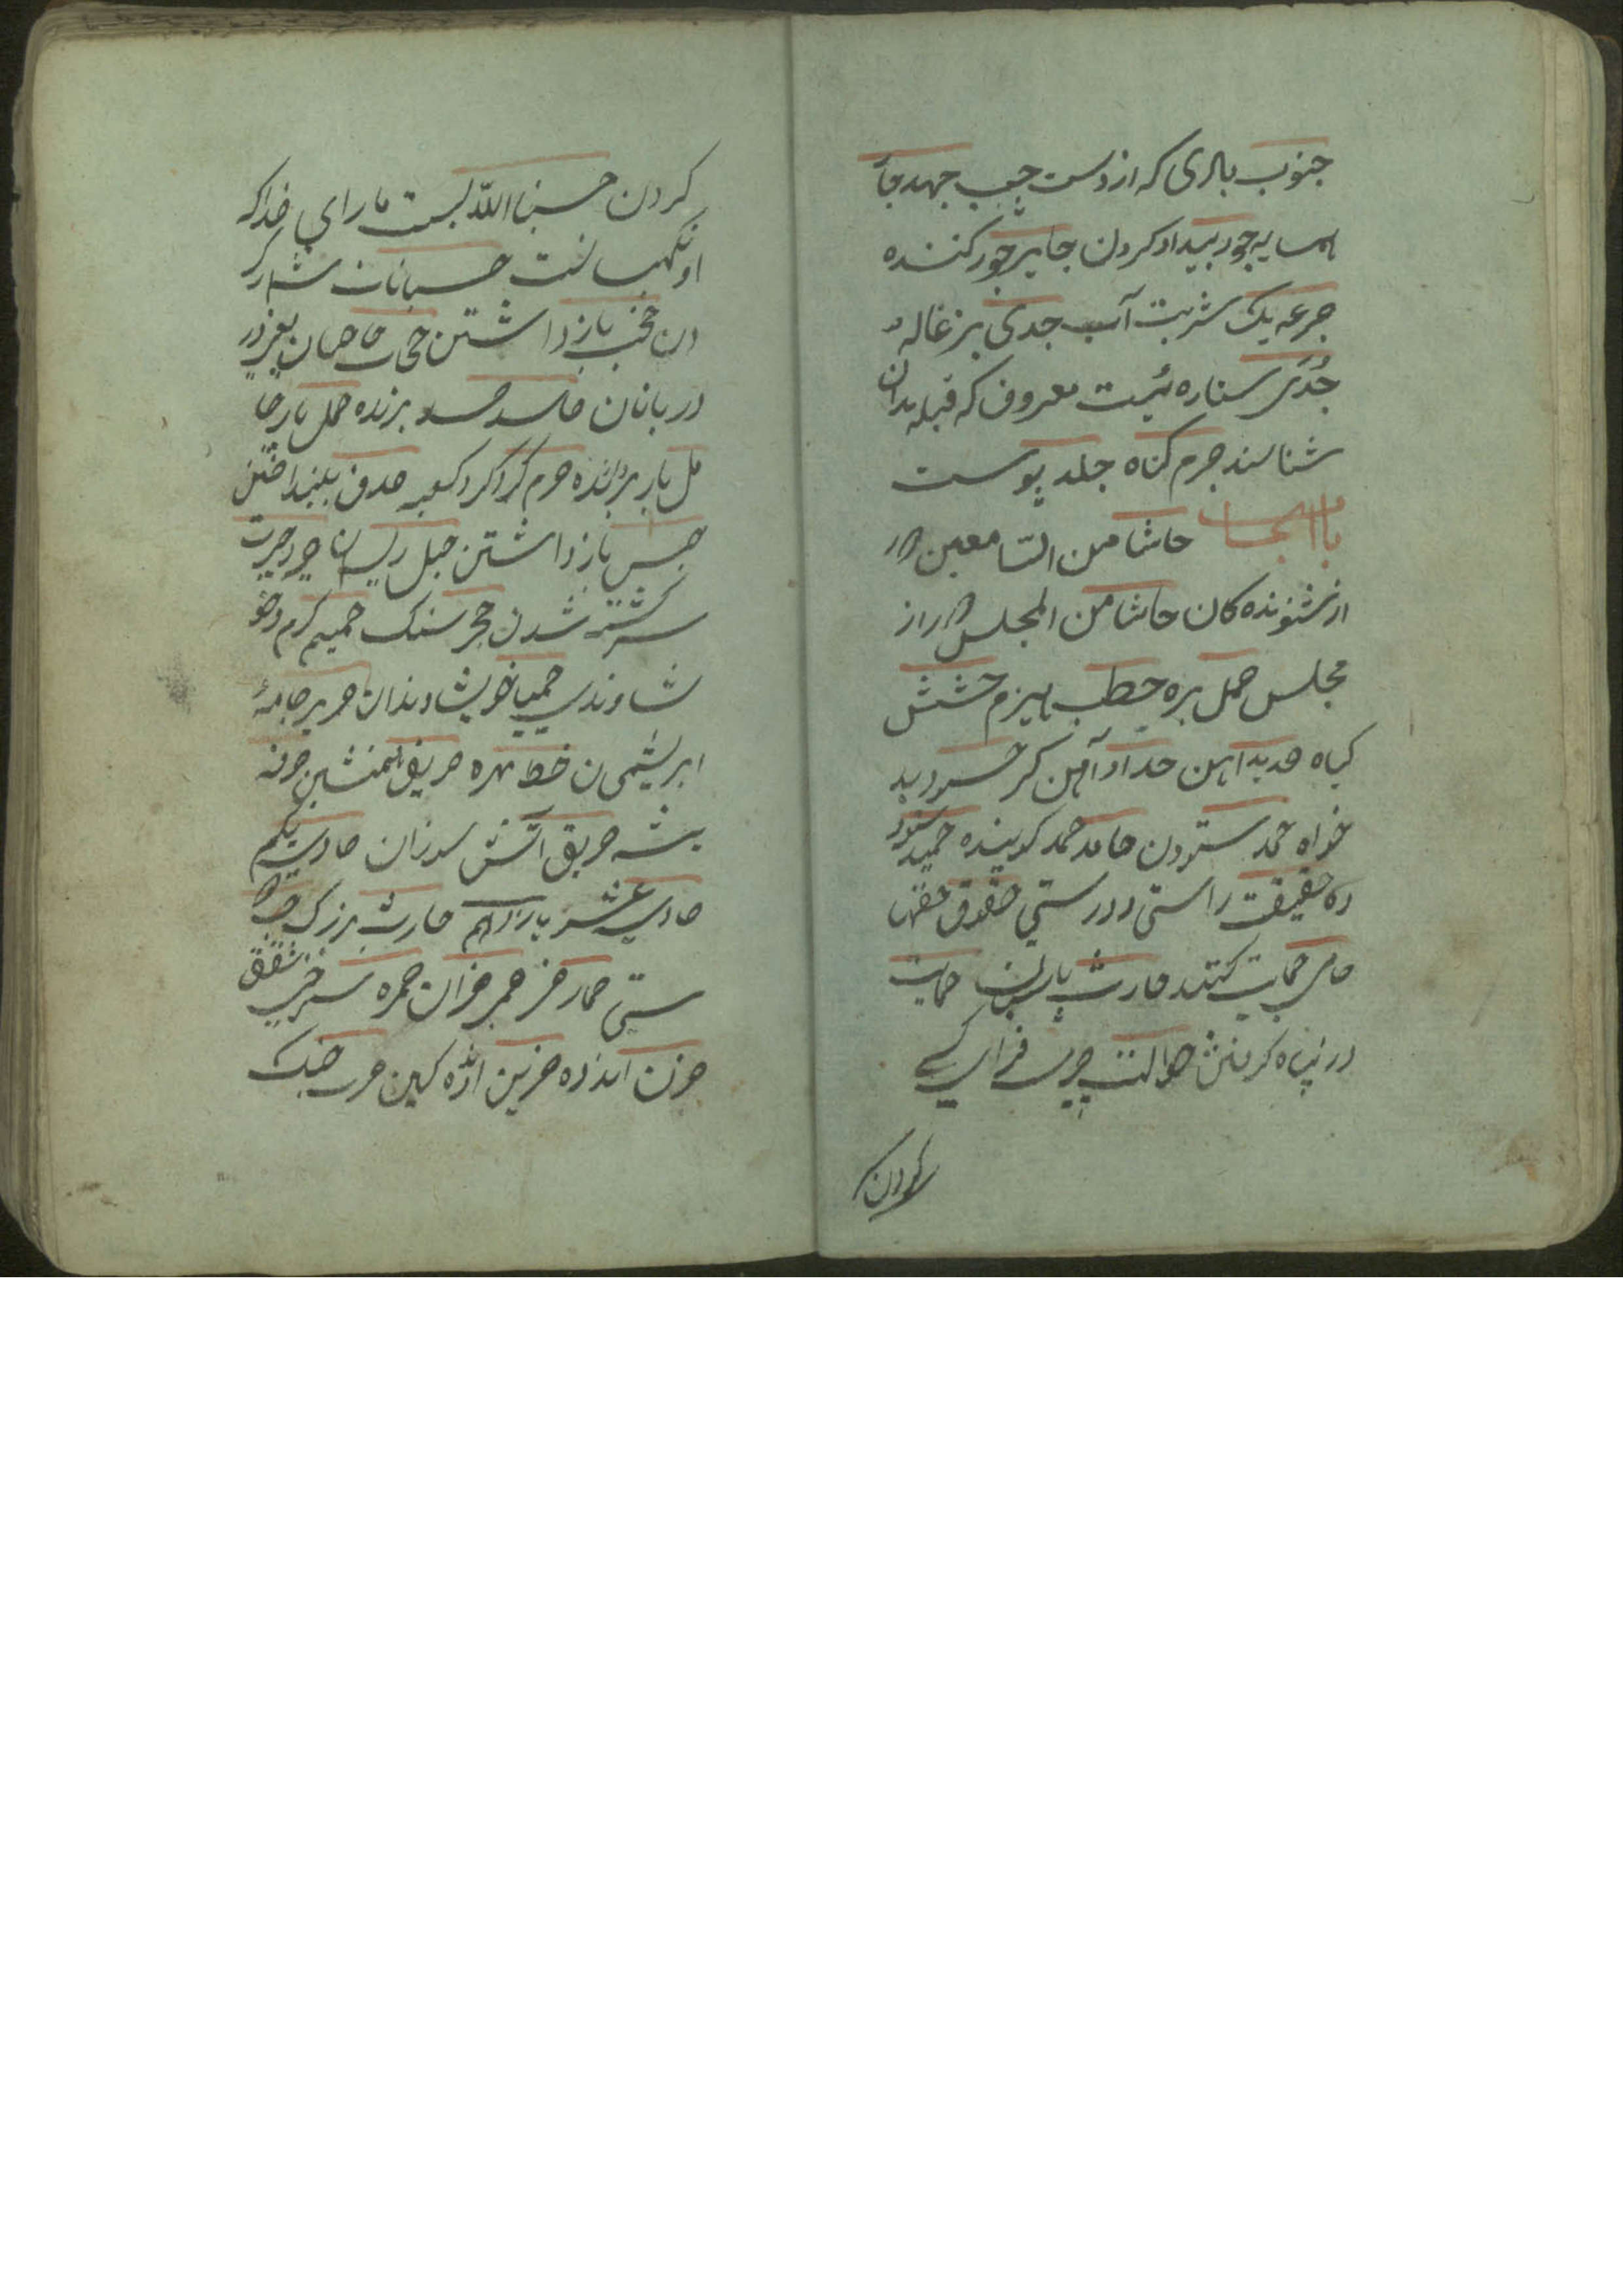 جنوب بادی که از دست چپ جهد جا
همسایه جور بیداد کردن جایر جور کننده
جرعه یک شربت آب جدی بزغاله
جدی ستاره ئیست معروف که قبله بدان
شناسند جرم کناه جلد پوست
باب الحا حاشا من السامعین دور
از شنونده کان حاشا من المجلس دور از
مجلس حمل بره حطب هیزم حشیش
کیاه حدید آهن حداد آهن کر حسود بد
خواه حمد ستودن حامد حمد کوینده حمید ستود
ده حقیقت راستی و درستی حقوق حقها
حامی حمایت کننده حارث حمایت
در پناه کرفتن حوالت چیزی فرا کسی
کردن
کردن حسبنا الله بست مارا خدا که
او نکهبانست حسبانات شمار کر
دن حجب باز داشتن حجاب
دربانان حاسد حسد برنده حمل بار حا
مل بار بردارنده حرم کرداکرد کعبه حذف بینداختن
حبس باز داشتن حبل ریسمان حیرت
سرکشته شدن حجر سنک حمیم کرم و خو
یشاوندی خویشاوندان حریر جامه
ابریشمین حظ بهره حریف همنشین حرفه
پیشه حریق آتش سوزان حادی یکم
حادی عشر یازدهم حارث بزرک
ستی حمار خر حمر خران حمره سرخی شفق
حزن اندوه حزین اندوه کین حرب جنک